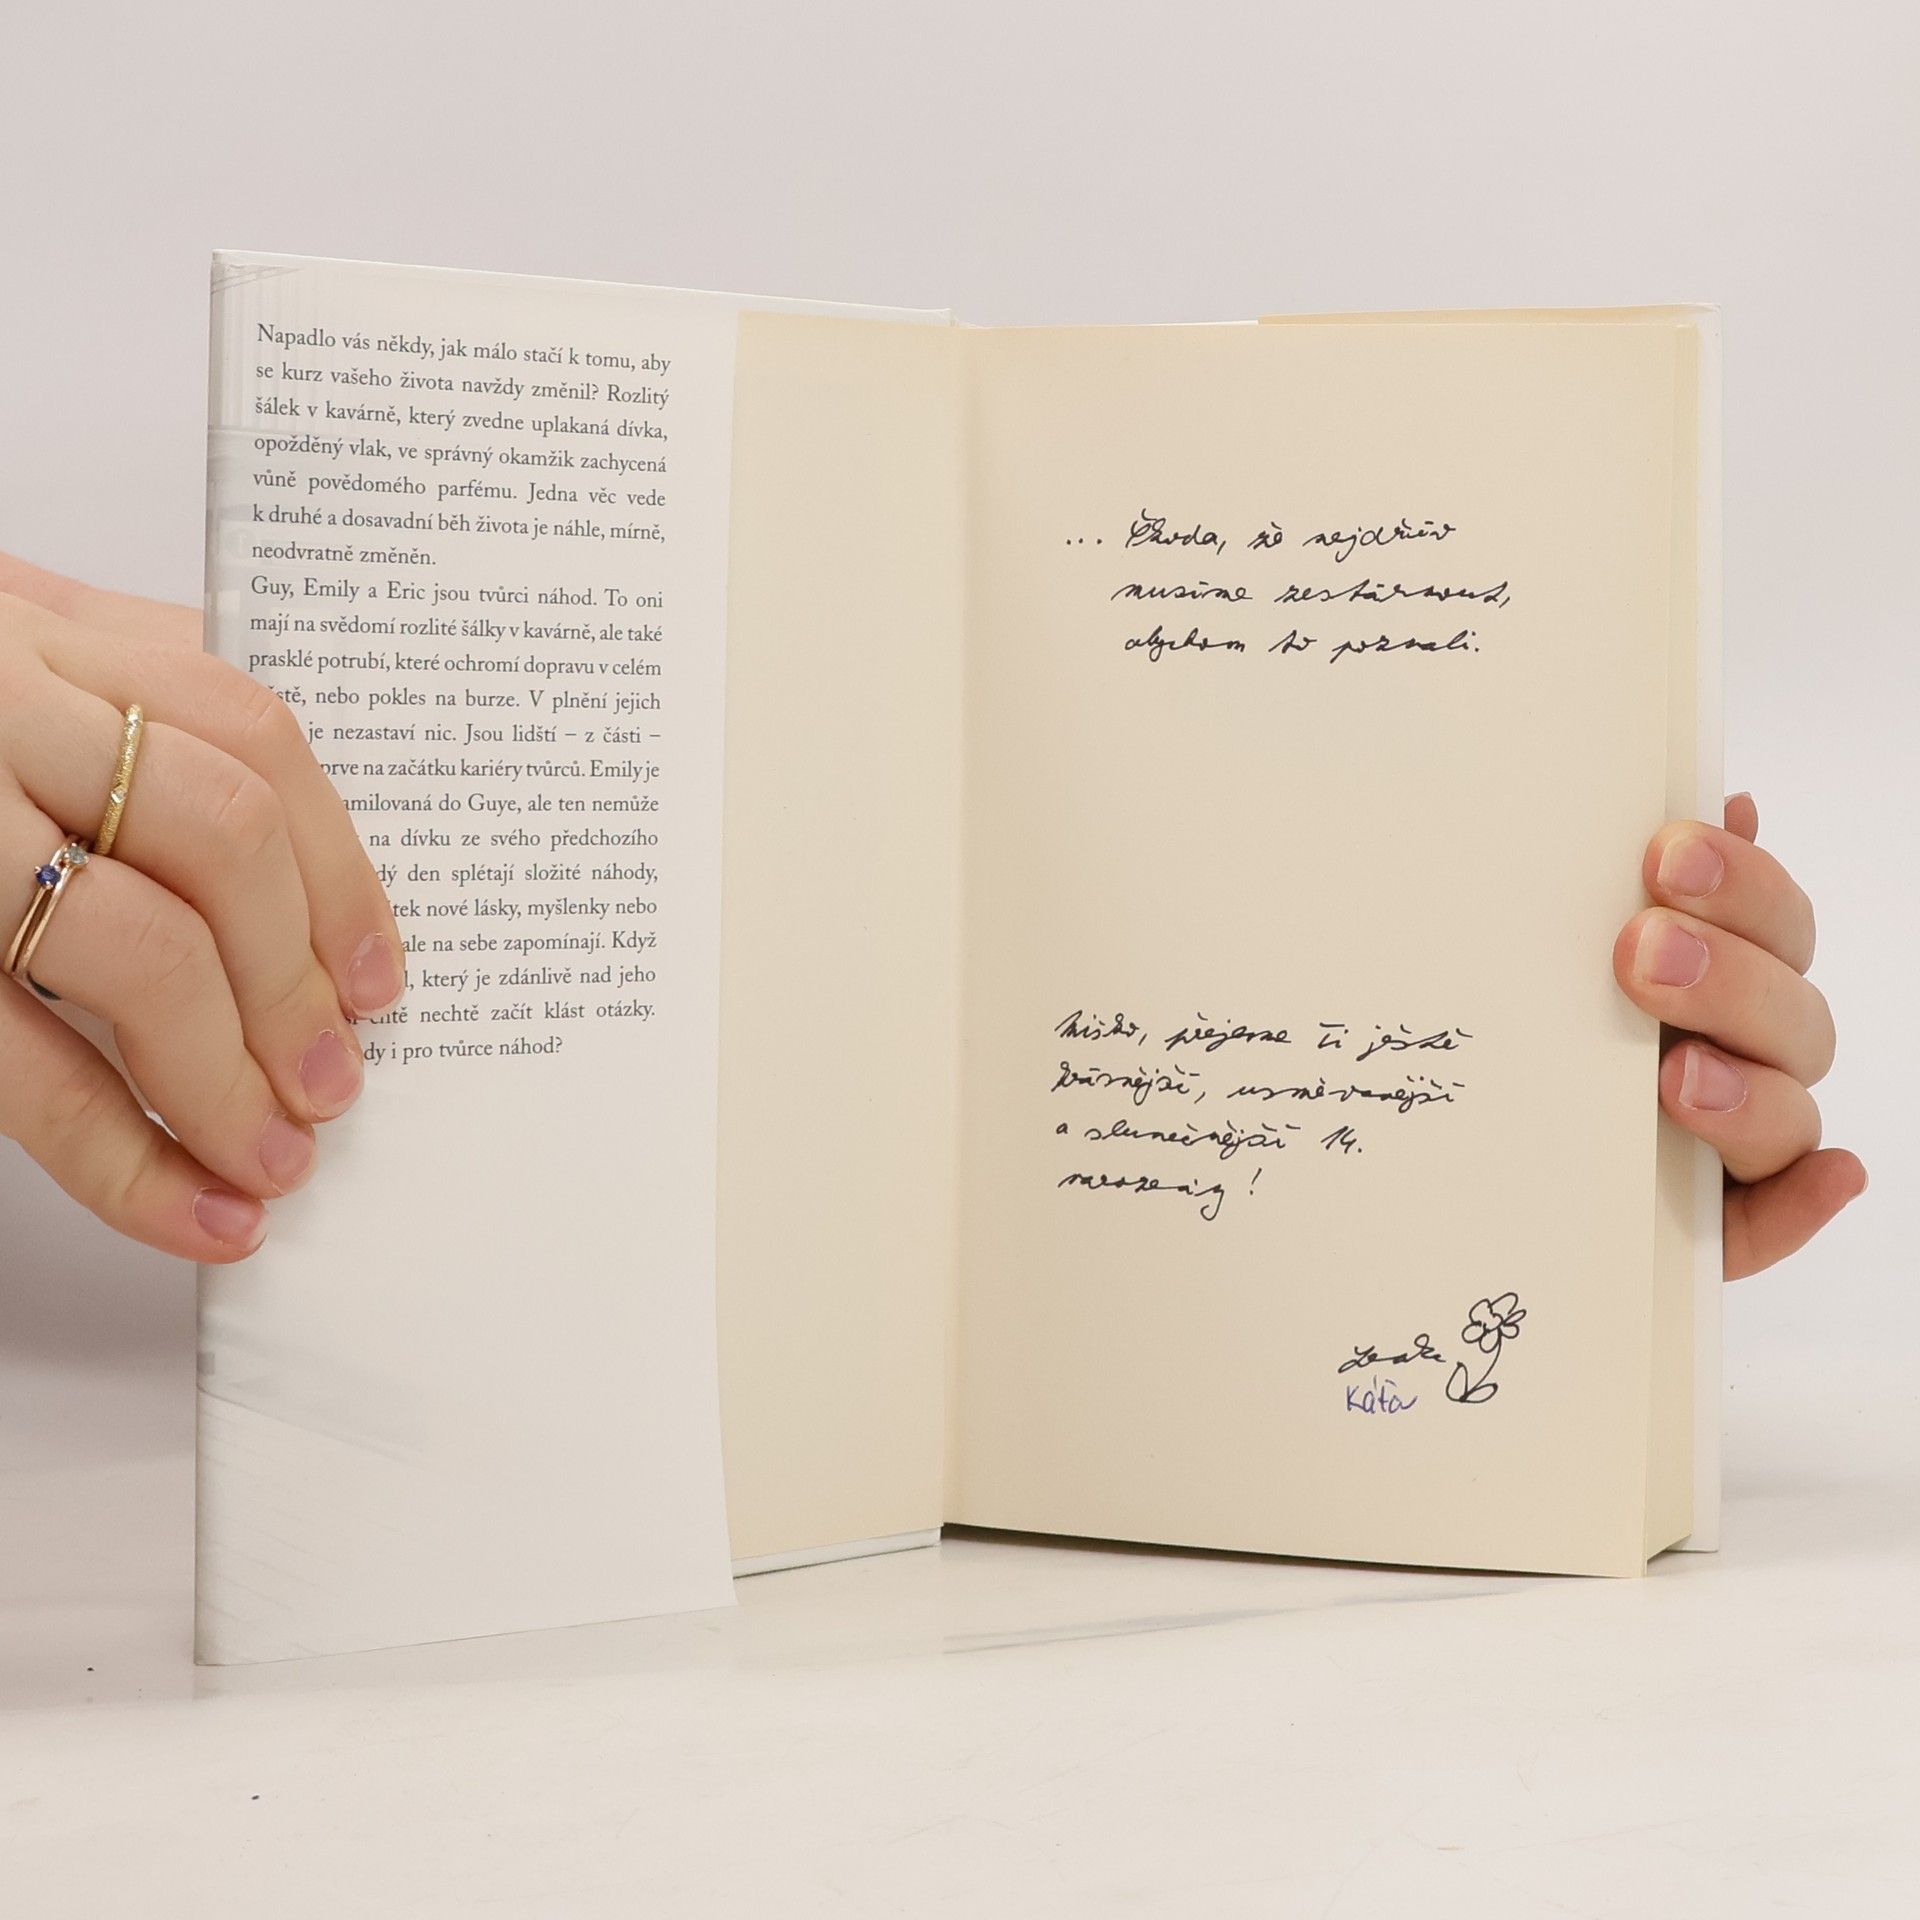 Napadlo vás někdy, jak málo stačí k tomu, aby
se kurz vašeho života navždy změnil? Rozlitý
šálek v kavárně, který zvedne uplakaná dívka,
opožděný vlak, ve správný okamžik zachycená
vůně povědomého parfému. Jedna věc vede
k druhé a dosavadní běh života je náhle, mírně,
neodvratně změněn.
Guy, Emily a Eric jsou tvůrci náhod. To oni
mají na svědomí rozlité šálky v kavárně, ale také
prasklé potrubí, které ochromí dopravu v celém
stě, nebo pokles na burze. V plnění jejich
je nezastaví nic. Jsou lidští – z části –
prve na začátku kariéry tvůrců. Emily je
amilovaná do Guye, ale ten nemůže
na dívku ze svého předchozího
dý den splétají složité náhody,
tek nové lásky, myšlenky nebo
ale na sebe zapomínají. Když
l, který je zdánlivě nad jeho
chtě nechtě začít klást otázky.
dy i pro tvůrce náhod?
... Škoda, že nejdřív
musíme zestárnout,
abychom to poznali.
Miško, přejeme Ti ještě
krásnější, usměvavější
a slunečnější 14.
narozeniny!
Lenka
Káťa